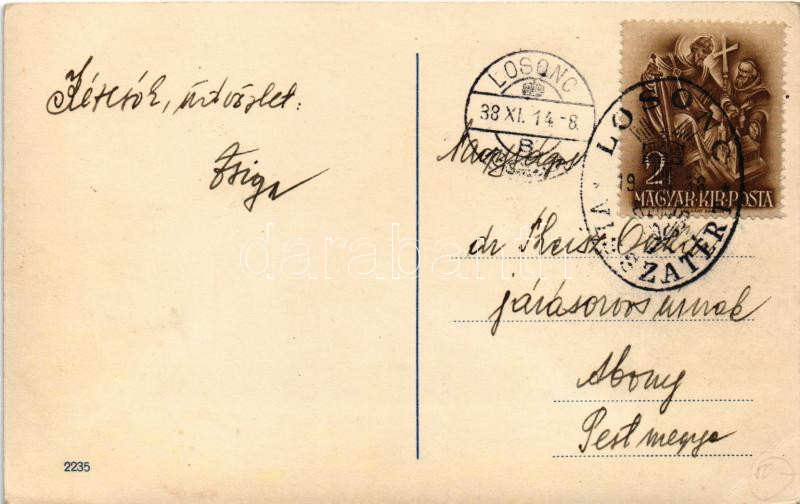 Kézcsók, üdvözlet:
Zsiga
LOSONC
38 XI. 14.-8.
B
LOSONC
19 38
VISSZATÉRT
2
MAGYAR·KIR·POSTA
Nagyságos
dr
járásorvos úrnak
Abony
Pest megye
2235
darabanth